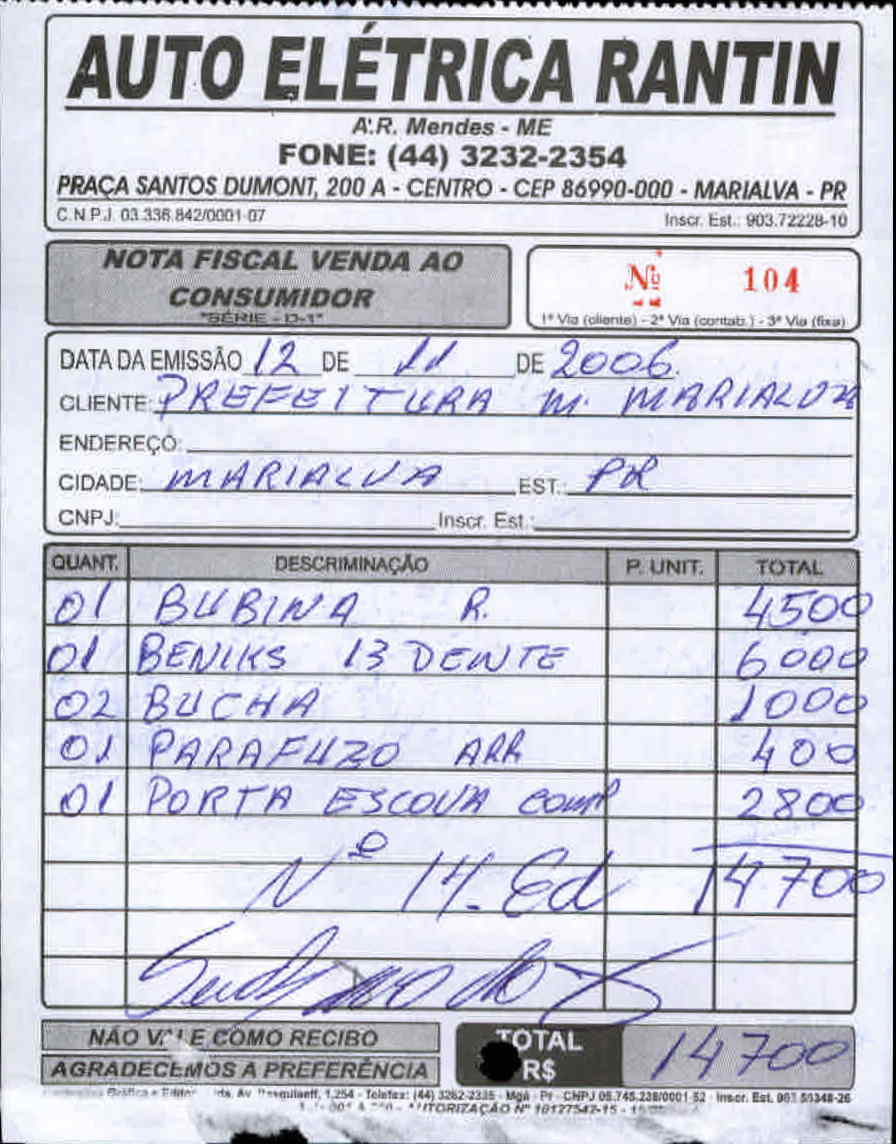 AUTO ELÉTRICA RANTIN
A.R. Mendes - ME
FONE: (44) 3232-2354
PRAÇA SANTOS DUMONT, 200 A - CENTRO - CEP 86990-000 - MARIALVA - PR
C.N.P.J. 03.336.842/0001-07 Inscr. Est.: 903.72228-10
NOTA FISCAL VENDA AO
CONSUMIDOR
"SÉRIE - D-1"
Nº 104
1ª Via (cliente) - 2ª Via (contab.) - 3ª Via (fixa)
DATA DA EMISSÃO 12 DE 11 DE 2006.
CLIENTE: PREFEITURA M. MARIALVA
ENDEREÇO:
CIDADE: MARIALVA EST.: PR
CNPJ: Inscr. Est.:
QUANT. DESCRIMINAÇÃO P. UNIT. TOTAL
01 BUBINA R. 4500
01 BENIKS 13 DENTE 6000
02 BUCHA 1000
01 PARAFUZO ARR 400
01 PORTA ESCOVA COMP 2800
Nº 14. Ed 14700
NÃO VALE COMO RECIBO
AGRADECEMOS A PREFERÊNCIA
TOTAL
R$ 14700
1.254 - Telefax: (44) 3262-2335 - Mgá - Pr - CNPJ 05.745.228/0001-52 - Inscr. Est.
AUTORIZAÇÃO Nº 10127542-15